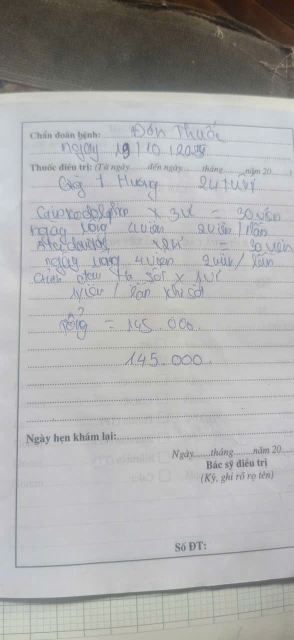 Chẩn đoán bệnh: Đơn Thuốc
ngày 19/10/2025
Thuốc điều trị: (Từ ngày.......đến ngày.......tháng.......năm 20......)
Hương 24 tuổi
x 3vỉ = 30 viên
ngày uống 4 viên 2 viên / lần
= 30 viên
ngày uống 4 viên 2 viên / lần
sốt x 1vỉ
1 viên / lần khi sốt
tổng = 145.000
145.000
Ngày hẹn khám lại:
Ngày.......tháng.......năm 20......
Bác sỹ điều trị
(Ký, ghi rõ họ tên)
Số ĐT: